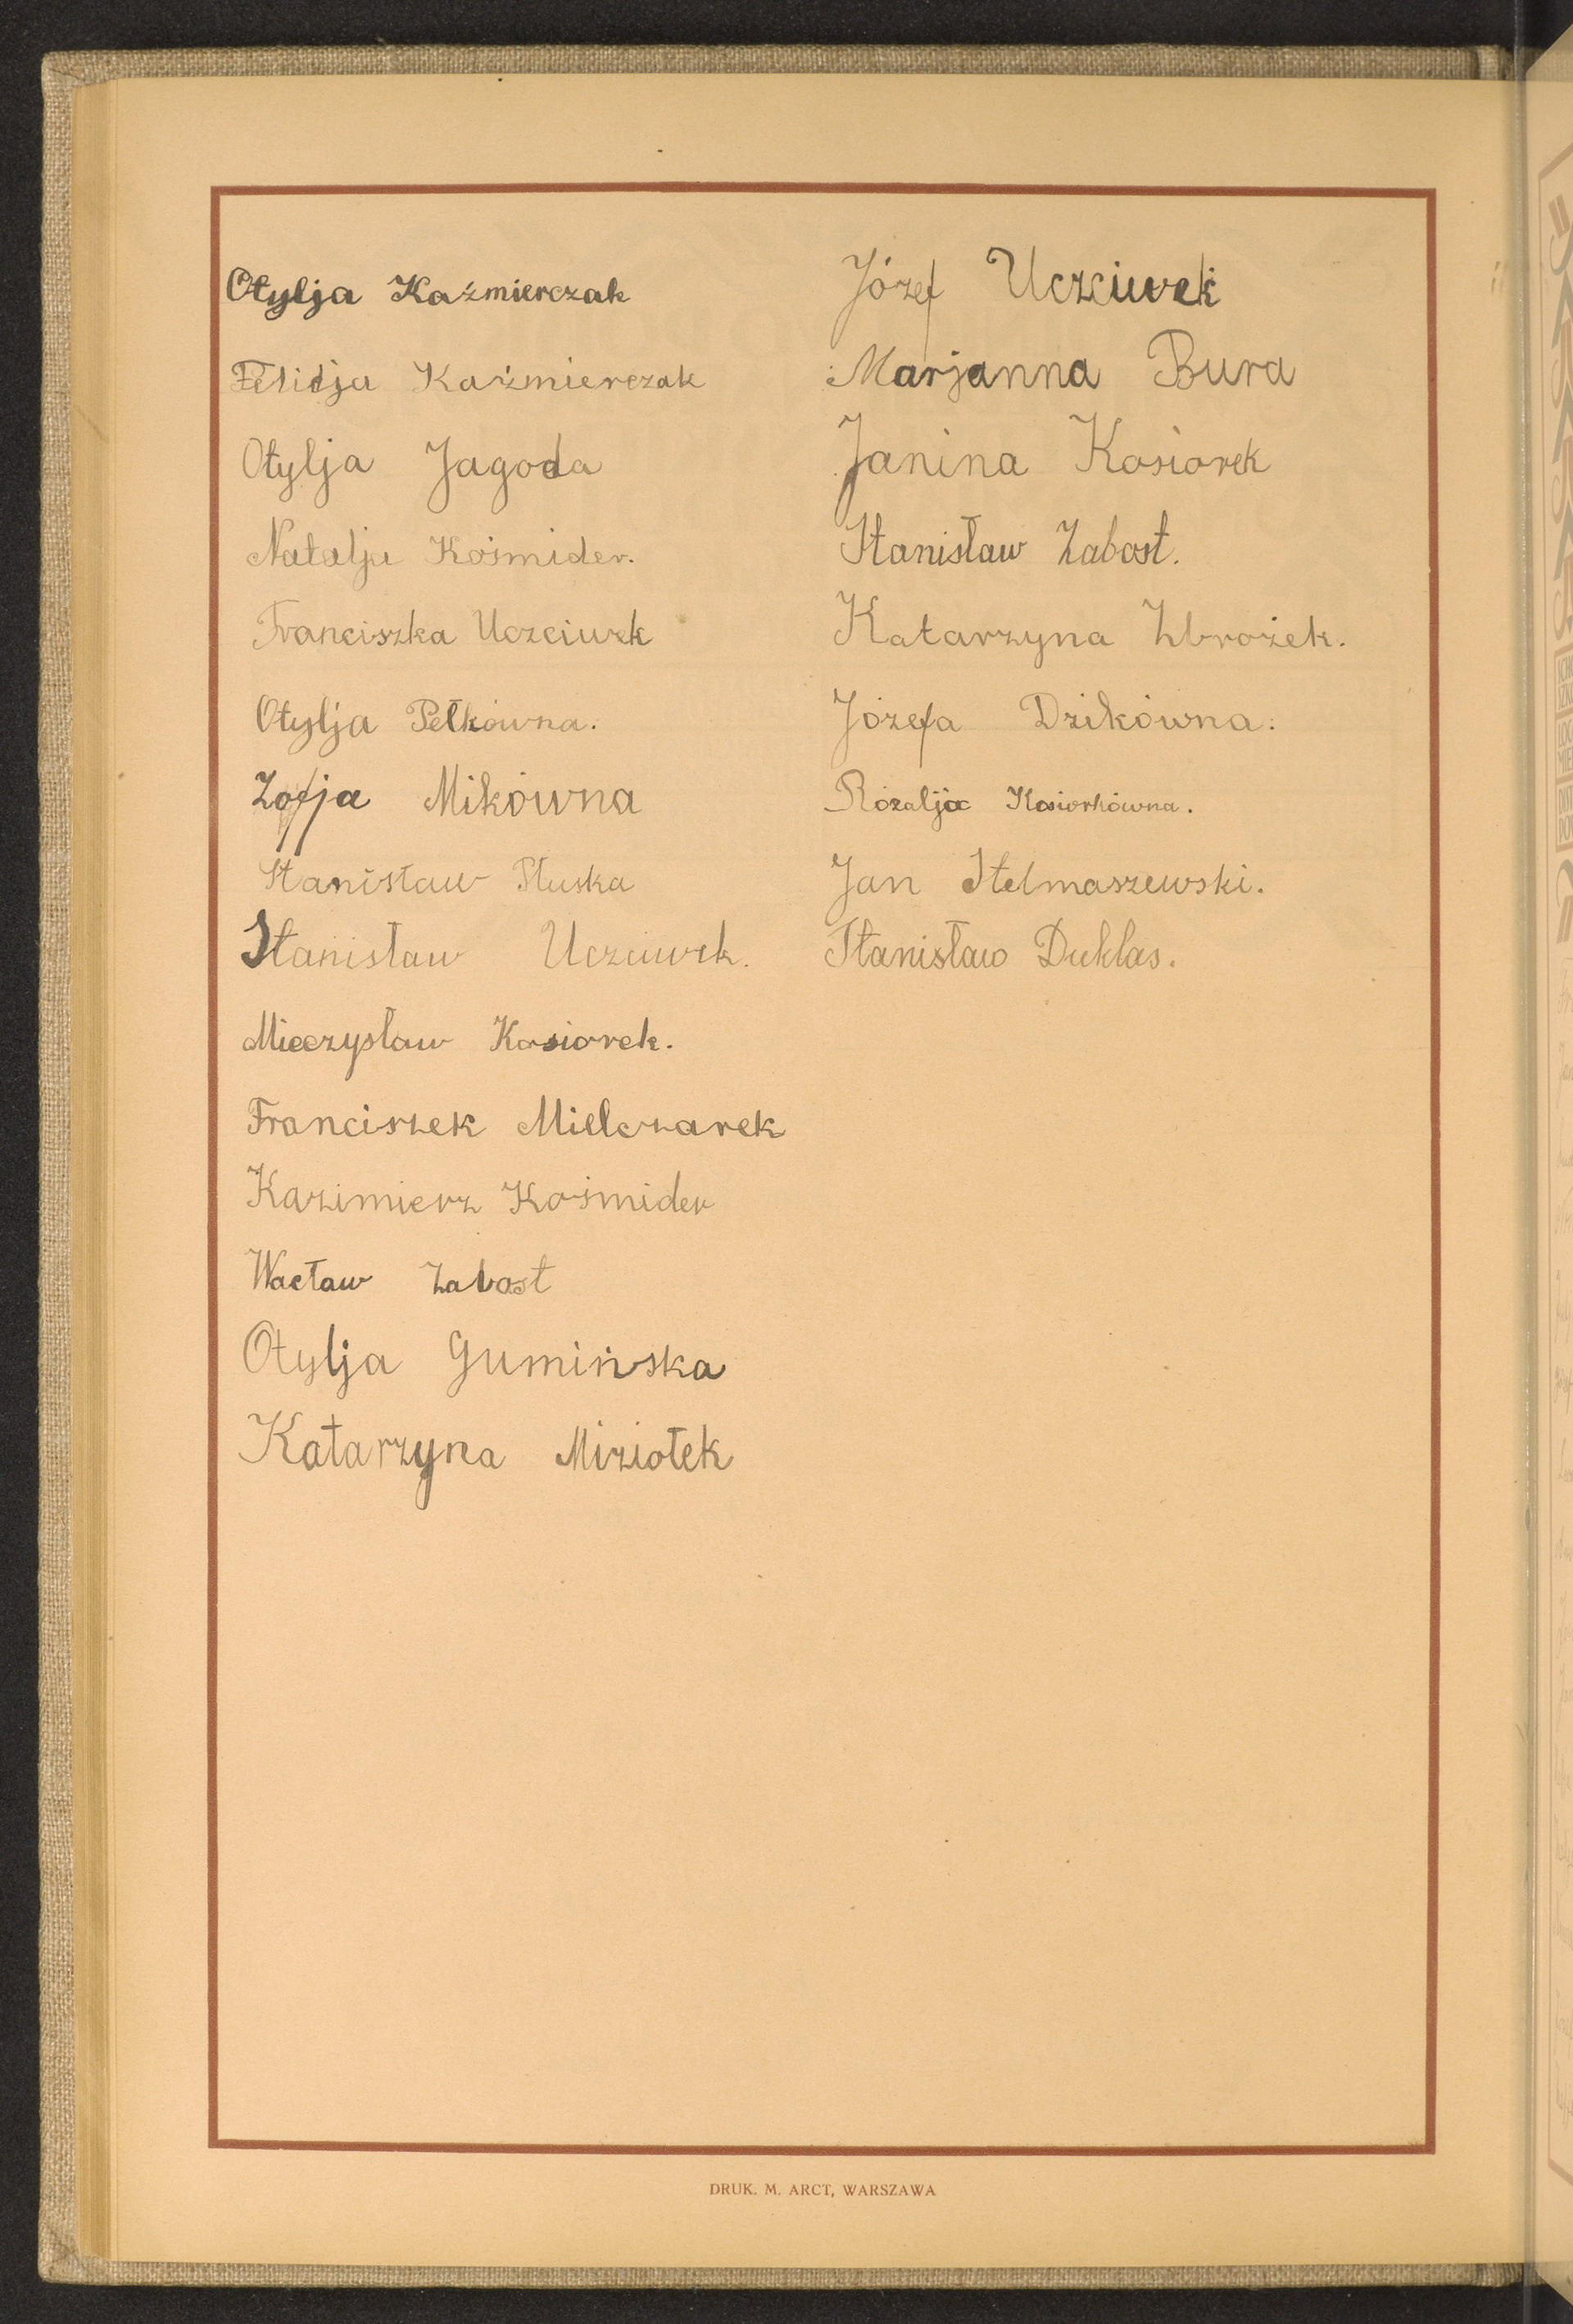 Otylja Kaźmierczak
Felidja Kaźmierczak
Otylja Jagoda
Natalja Kośmider.
Franciszka Uczciwek
Otylja Pełkówna.
Zofja Mikówna
Stanisław Pluska
Stanisław Uczciwek.
Mieczysław Kosiorek.
Franciszek Mielczarek
Kazimierz Kośmider
Wacław Zabost
Otylja Gumińska
Katarzyna Miziołek
Józef Uczciwek
Marjanna Bura
Janina Kosiorek
Stanisław Zabost.
Katarzyna Zbrożek.
Józefa Dzikówna.
Rozalja Kosiorkówna.
Jan Stelmaszewski.
Stanisław Duklas.
DRUK. M. ARCT, WARSZAWA